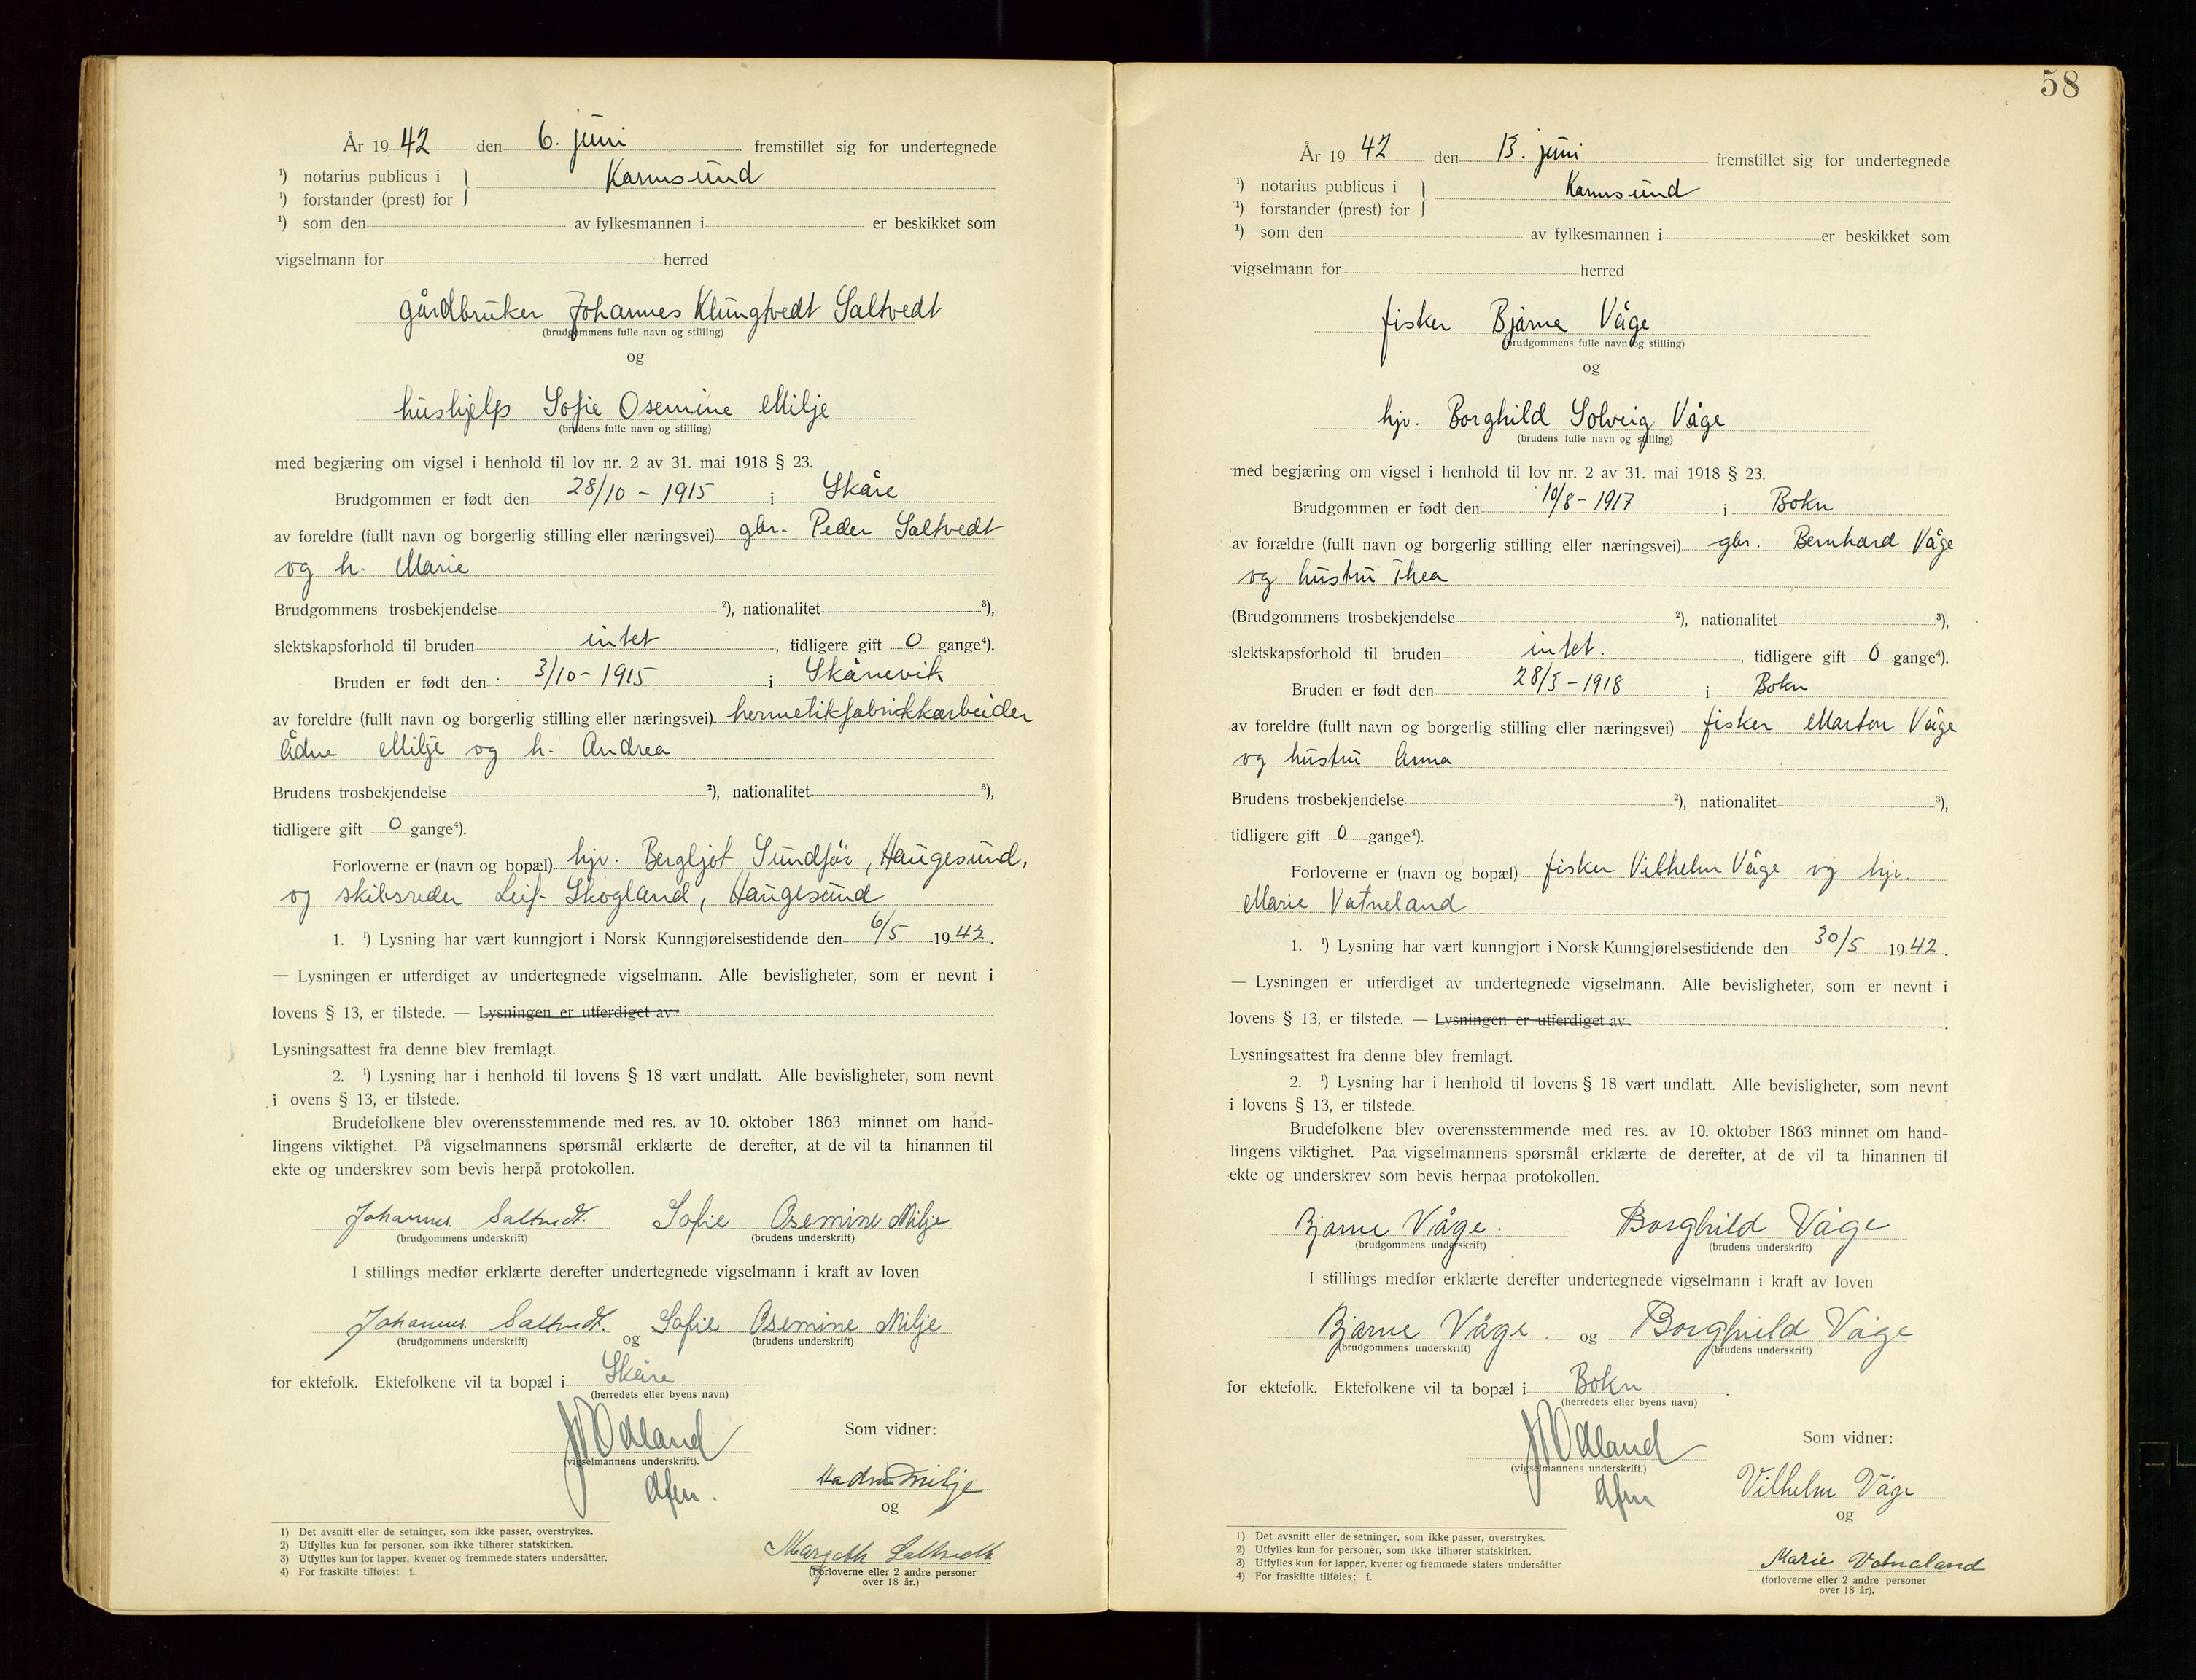 År 1942 den 6. juni fremstillet sig for undertegnede
¹) notarius publicus i } Karmsund
¹) forstander (prest) for
¹) som den av fylkesmannen i er beskikket som
vigselmann for herred
gårdbruker Johannes Klungtvedt Saltvedt
(brudgommens fulle navn og stilling)
og
hushjelp Sofie Osemine Milje
(brudens fulle navn og stilling)
med begjæring om vigsel i henhold til lov nr. 2 av 31. mai 1918 § 23.
Brudgommen er født den 28/10 - 1915 i Skåre
av foreldre (fullt navn og borgerlig stilling eller næringsvei) gbr. Peder Saltvedt
og h. Marie
Brudgommens trosbekjendelse ²), nationalitet ³),
slektskapsforhold til bruden intet, tidligere gift 0 gange⁴).
Bruden er født den 3/10 - 1915 i Skånevik
av foreldre (fullt navn og borgerlig stilling eller næringsvei) hermetikfabrikkarbeider
Ådne Milje og h. Andrea
Brudens trosbekjendelse ²), nationalitet ³),
tidligere gift 0 gange⁴).
Forloverne er (navn og bopæl) hjv. Bergljot Sundfør, Haugesund,
og skibsreder Leif Skogland, Haugesund
1. ¹) Lysning har vært kunngjort i Norsk Kunngjørelsestidende den 6/5 1942.
— Lysningen er utferdiget av undertegnede vigselmann. Alle bevisligheter, som er nevnt i
lovens § 13, er tilstede. — Lysningen er utferdiget av
Lysningsattest fra denne blev fremlagt.
2. ¹) Lysning har i henhold til lovens § 18 vært undlatt. Alle bevisligheter, som nevnt
i ovens § 13, er tilstede.
Brudefolkene blev overensstemmende med res. av 10. oktober 1863 minnet om hand-
lingens viktighet. På vigselmannens spørsmål erklærte de derefter, at de vil ta hinannen til
ekte og underskrev som bevis herpå protokollen.
Johannes Saltvedt. Sofie Osemine Milje
(brudgommens underskrift) (brudens underskrift)
I stillings medfør erklærte derefter undertegnede vigselmann i kraft av loven
Johannes Saltvedt. og Sofie Osemine Milje
(brudgommens underskrift) (brudens underskrift)
for ektefolk. Ektefolkene vil ta bopæl i Skåre
(herredets eller byens navn)
Odland
(vigselmannens underskrift).
Som vidner:
Milje
og
Margoth Saltvedt
(Forloverne eller 2 andre personer
over 18 år.)
1) Det avsnitt eller de setninger, som ikke passer, overstrykes.
2) Utfylles kun for personer, som ikke tilhører statskirken.
3) Utfylles kun for lapper, kvener og fremmede staters undersåtter.
4) For fraskilte tilføies: f.
58
År 1942 den 13. juni fremstillet sig for undertegnede
¹) notarius publicus i } Karmsund
¹) forstander (prest) for
¹) som den av fylkesmannen i er beskikket som
vigselmann for herred
fisker Bjarne Våge
(brudgommens fulle navn og stilling)
og
hjv. Borghild Solveig Våge
(brudens fulle navn og stilling)
med begjæring om vigsel i henhold til lov nr. 2 av 31. mai 1918 § 23.
Brudgommen er født den 10/8 - 1917 i Bokn
av forældre (fullt navn og borgerlig stilling eller næringsvei) gbr. Bernhard Våge
og hustru Thea
(Brudgommens trosbekjendelse ²), nationalitet ³),
slektskapsforhold til bruden intet., tidligere gift 0 gange⁴).
Bruden er født den 28/3 - 1918 i Bokn
av foreldre (fullt navn og borgerlig stilling eller næringsvei) fisker Marton Våge
og hustru Anna
Brudens trosbekjendelse ²), nationalitet ³),
tidligere gift 0 gange⁴).
Forloverne er (navn og bopæl) fisker Vilhelm Våge og hjv.
Marie Vatneland
1. ¹) Lysning har vært kunngjort i Norsk Kunngjørelsestidende den 30/5 1942.
— Lysningen er utferdiget av undertegnede vigselmann. Alle bevisligheter, som er nevnt i
lovens § 13, er tilstede. — Lysningen er utferdiget av
Lysningsattest fra denne blev fremlagt.
2. ¹) Lysning har i henhold til lovens § 18 vært undlatt. Alle bevisligheter, som nevnt
i lovens § 13, er tilstede.
Brudefolkene blev overensstemmende med res. av 10. oktober 1863 minnet om hand-
lingens viktighet. Paa vigselmannens spørsmål erklærte de derefter, at de vil ta hinannen til
ekte og underskrev som bevis herpaa protokollen.
Bjarne Våge. Borghild Våge
(brudgommens underskrift) (brudens underskrift)
I stillings medfør erklærte derefter undertegnede vigselmann i kraft av loven
Bjarne Våge. og Borghild Våge
(brudgommens underskrift) (brudens underskrift)
for ektefolk. Ektefolkene vil ta bopæl i Bokn.
(herredets eller byens navn)
Odland
(vigselmannens underskrift.)
Som vidner:
Vilhelm Våge
og
Marie Vatnaland
(forloverne eller 2 andre personer
over 18 år).
1) Det avsnitt eller de setninger, som ikke passer, overstrykes.
2) Utfylles kun for personer, som ikke tilhører statskirken.
3) Utfylles kun for lapper, kvener og fremmede staters undersåtter
4) For fraskilte tilføies: f.